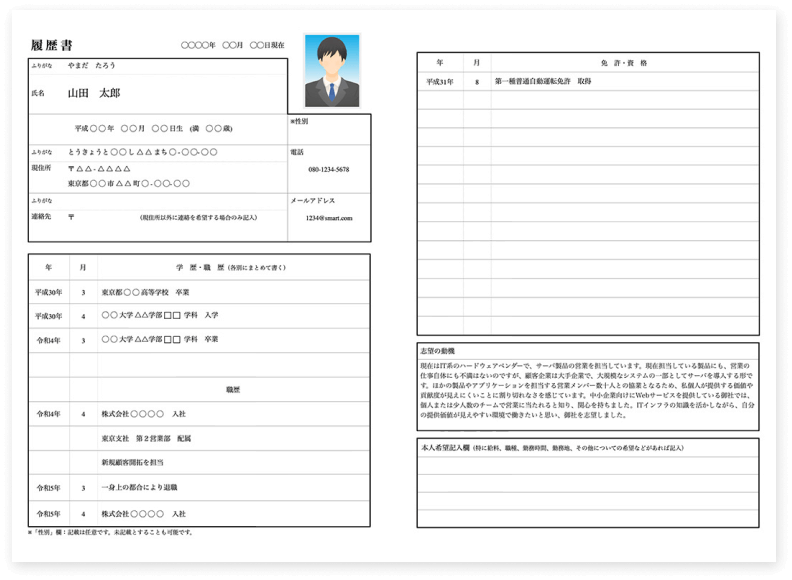 履歴書
〇〇〇〇年 〇〇月 〇〇日現在
ふりがな やまだ たろう
氏名 山田 太郎
平成〇〇年 〇〇月 〇〇日生 (満 〇〇歳)
※性別
ふりがな とうきょうと〇〇し△△まち〇-〇〇-〇〇
現住所 〒△△-△△△△
東京都〇〇市△△町〇-〇〇-〇〇
電話
080-1234-5678
ふりがな
連絡先 〒 (現住所以外に連絡を希望する場合のみ記入)
メールアドレス
1234@smart.com
年 月 学 歴・職 歴 (各別にまとめて書く)
平成30年 3 東京都〇〇高等学校 卒業
平成30年 4 〇〇大学△△学部□□学科 入学
令和4年 3 〇〇大学△△学部□□学科 卒業
職歴
令和4年 4 株式会社〇〇〇〇 入社
東京支社 第2営業部 配属
新規顧客開拓を担当
令和5年 3 一身上の都合により退職
令和5年 4 株式会社〇〇〇〇 入社
※「性別」欄:記載は任意です。未記載とすることも可能です。
年 月 免 許・資 格
平成31年 8 第一種普通自動運転免許 取得
志望の動機
現在はIT系のハードウェアベンダーで、サーバ製品の営業を担当しています。現在担当している製品にも、営業の
仕事自体にも不満はないのですが、顧客企業は大手企業で、大規模なシステムの一部としてサーバを導入する形で
す。ほかの製品やアプリケーションを担当する営業メンバー数十人との協業となるため、私個人が提供する価値や
貢献度が見えにくいことに割り切れなさを感じています。中小企業向けにWebサービスを提供している御社では、
個人または少人数のチームで営業に当たれると知り、関心を持ちました。ITインフラの知識を活かしながら、自分
の提供価値が見えやすい環境で働きたいと思い、御社を志望しました。
本人希望記入欄 (特に給料、職種、勤務時間、勤務地、その他についての希望などがあれば記入)